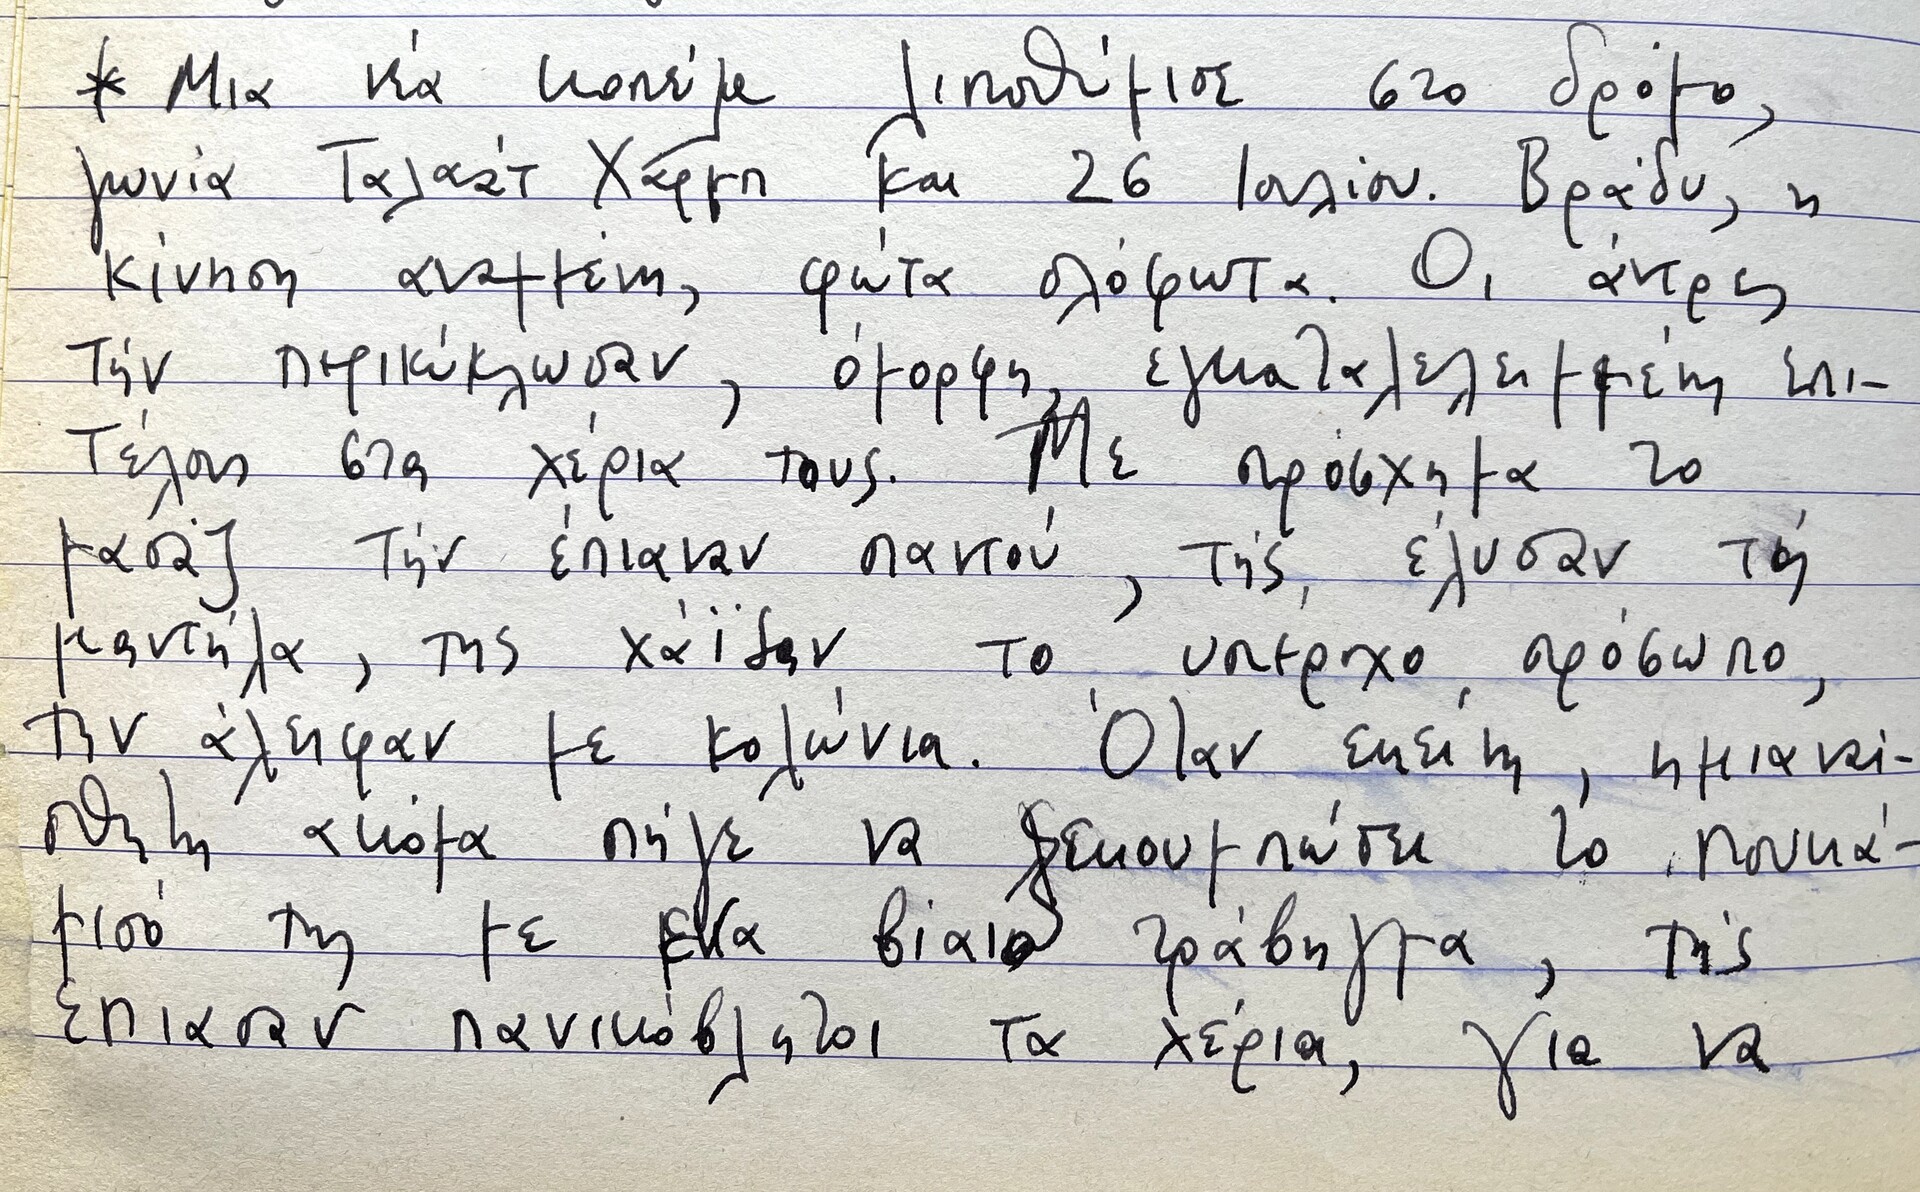 * Μια νέα κοπέλα λιποθύμισε στο δρόμο,
γωνία Ταλαάτ Χάρμπ και 26 Ιουλίου. Βράδυ, η
κίνηση αναμμένη, φώτα ολόφωτα. Οι άντρες
τήν περικύκλωσαν, όμορφη, εγκαταλελειμμένη επι-
τέλους στα χέρια τους. Με πρόσχημα το
μασάζ τήν έπιαναν παντού, τής έλυσαν τή
μαντήλα, της χάϊδεψαν το υπέροχο πρόσωπο,
την άλειφαν με κολώνια. Όταν εκείνη, ημιαναί-
σθητη ακόμα πήγε να ξεκουμπώσει το πουκά-
μισό της με ένα βίαιο τράβηγμα, τής
έπιασαν πανικόβλητοι τα χέρια, για να